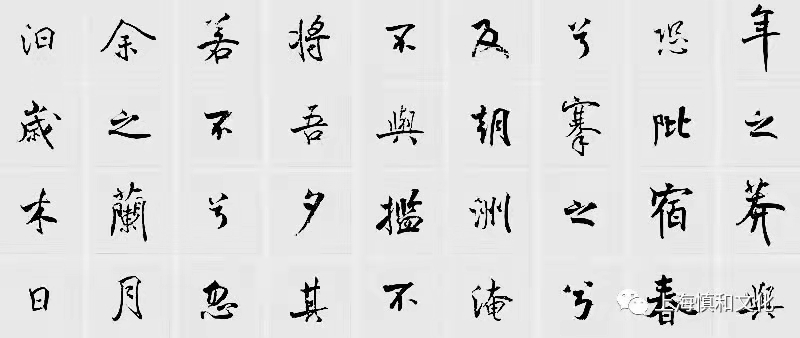 汩余若将不及兮恐年
歲之不吾與朝搴阰之
木蘭兮夕㩜洲之宿莽
日月忽其不淹兮春與
上海慎和文化